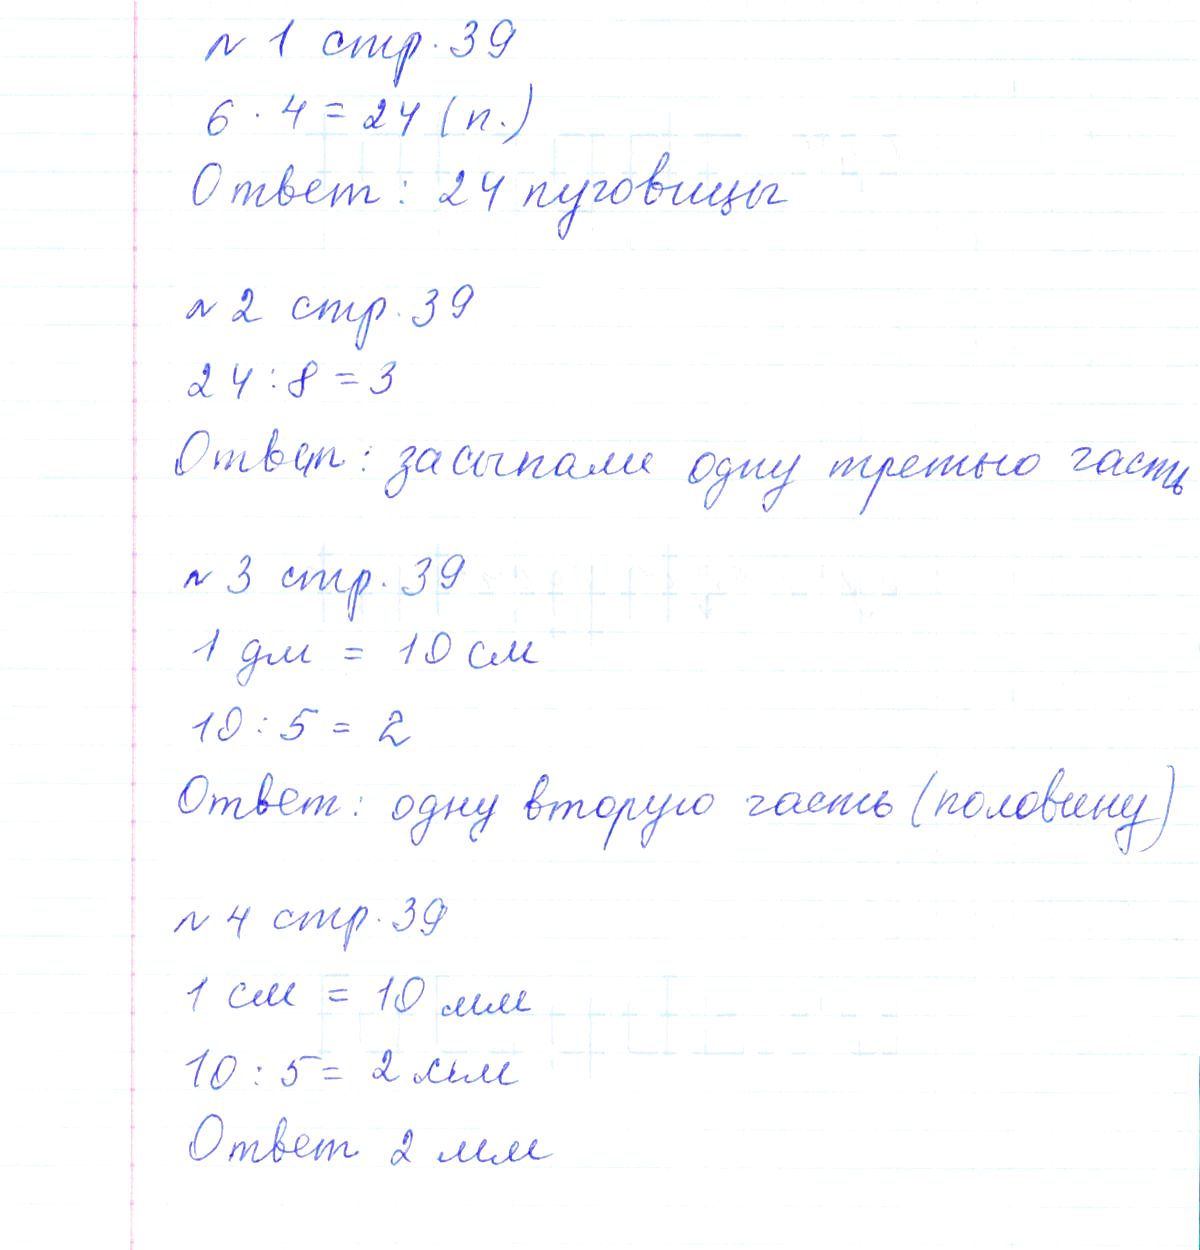 № 1 стр. 39
6 · 4 = 24 (п.)
Ответ: 24 пуговицы
№ 2 стр. 39
24 : 8 = 3
Ответ: засыпали одну третью часть
№ 3 стр. 39
1 дм = 10 см
10 : 5 = 2
Ответ: одну вторую часть (половину)
№ 4 стр. 39
1 см = 10 мм
10 : 5 = 2 мм
Ответ 2 мм